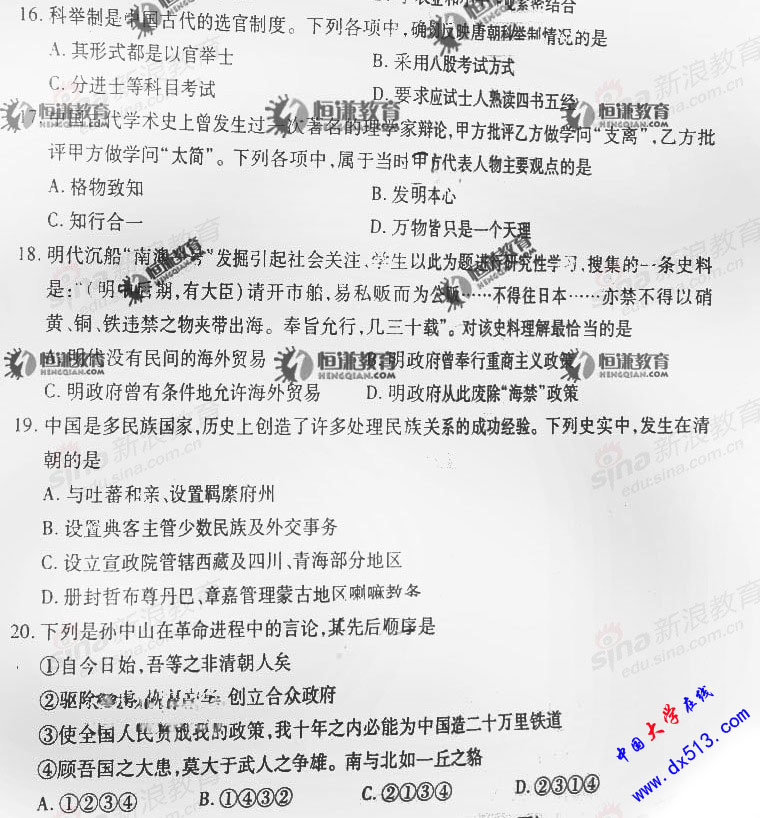 系密结合
16. 科举制是中国古代的选官制度。下列各项中,确切反映唐朝科举制情况的是
A. 其形式都是以官举士 B. 采用八股考试方式
C. 分进士等科目考试 D. 要求应试士人熟读四书五经
17. 中国古代学术史上曾发生过一次著名的理学家辩论,甲方批评乙方做学问“支离”,乙方批
评甲方做学问“太简”。下列各项中,属于当时甲方代表人物主要观点的是
A. 格物致知 B. 发明本心
C. 知行合一 D. 万物皆只是一个天理
18. 明代沉船“南澳一号”发掘引起社会关注、学生以此为题进行研究性学习,搜集的一条史料
是:“(明中后期,有大臣)请开市舶,易私贩而为公贩……不得往日本……亦禁不得以硝
黄、铜、铁违禁之物夹带出海。奉旨允行,几三十载”。对该史料理解最恰当的是
A. 明代没有民间的海外贸易 B. 明政府曾奉行重商主义政策
C. 明政府曾有条件地允许海外贸易 D. 明政府从此废除“海禁”政策
19. 中国是多民族国家,历史上创造了许多处理民族关系的成功经验。下列史实中,发生在清
朝的是
A. 与吐蕃和亲、设置羁縻府州
B. 设置典客主管少数民族及外交事务
C. 设立宣政院管辖西藏及四川、青海部分地区
D. 册封哲布尊丹巴、章嘉管理蒙古地区喇嘛教务
20. 下列是孙中山在革命进程中的言论,其先后顺序是
①自今日始,吾等之非清朝人矣
②驱除 创立合众政府
③使全国人民赞成我的政策,我十年之内必能为中国造二十万里铁道
④顾吾国之大患,莫大于武人之争雄。南与北如一丘之貉
A. ①②③④ B. ①④③② C. ②①③④ D. ②③①④
恒谦教育
HENGQIAN.COM
sina新浪教育
edu.sina.com.cn
中国大学在线
www.dx513.com